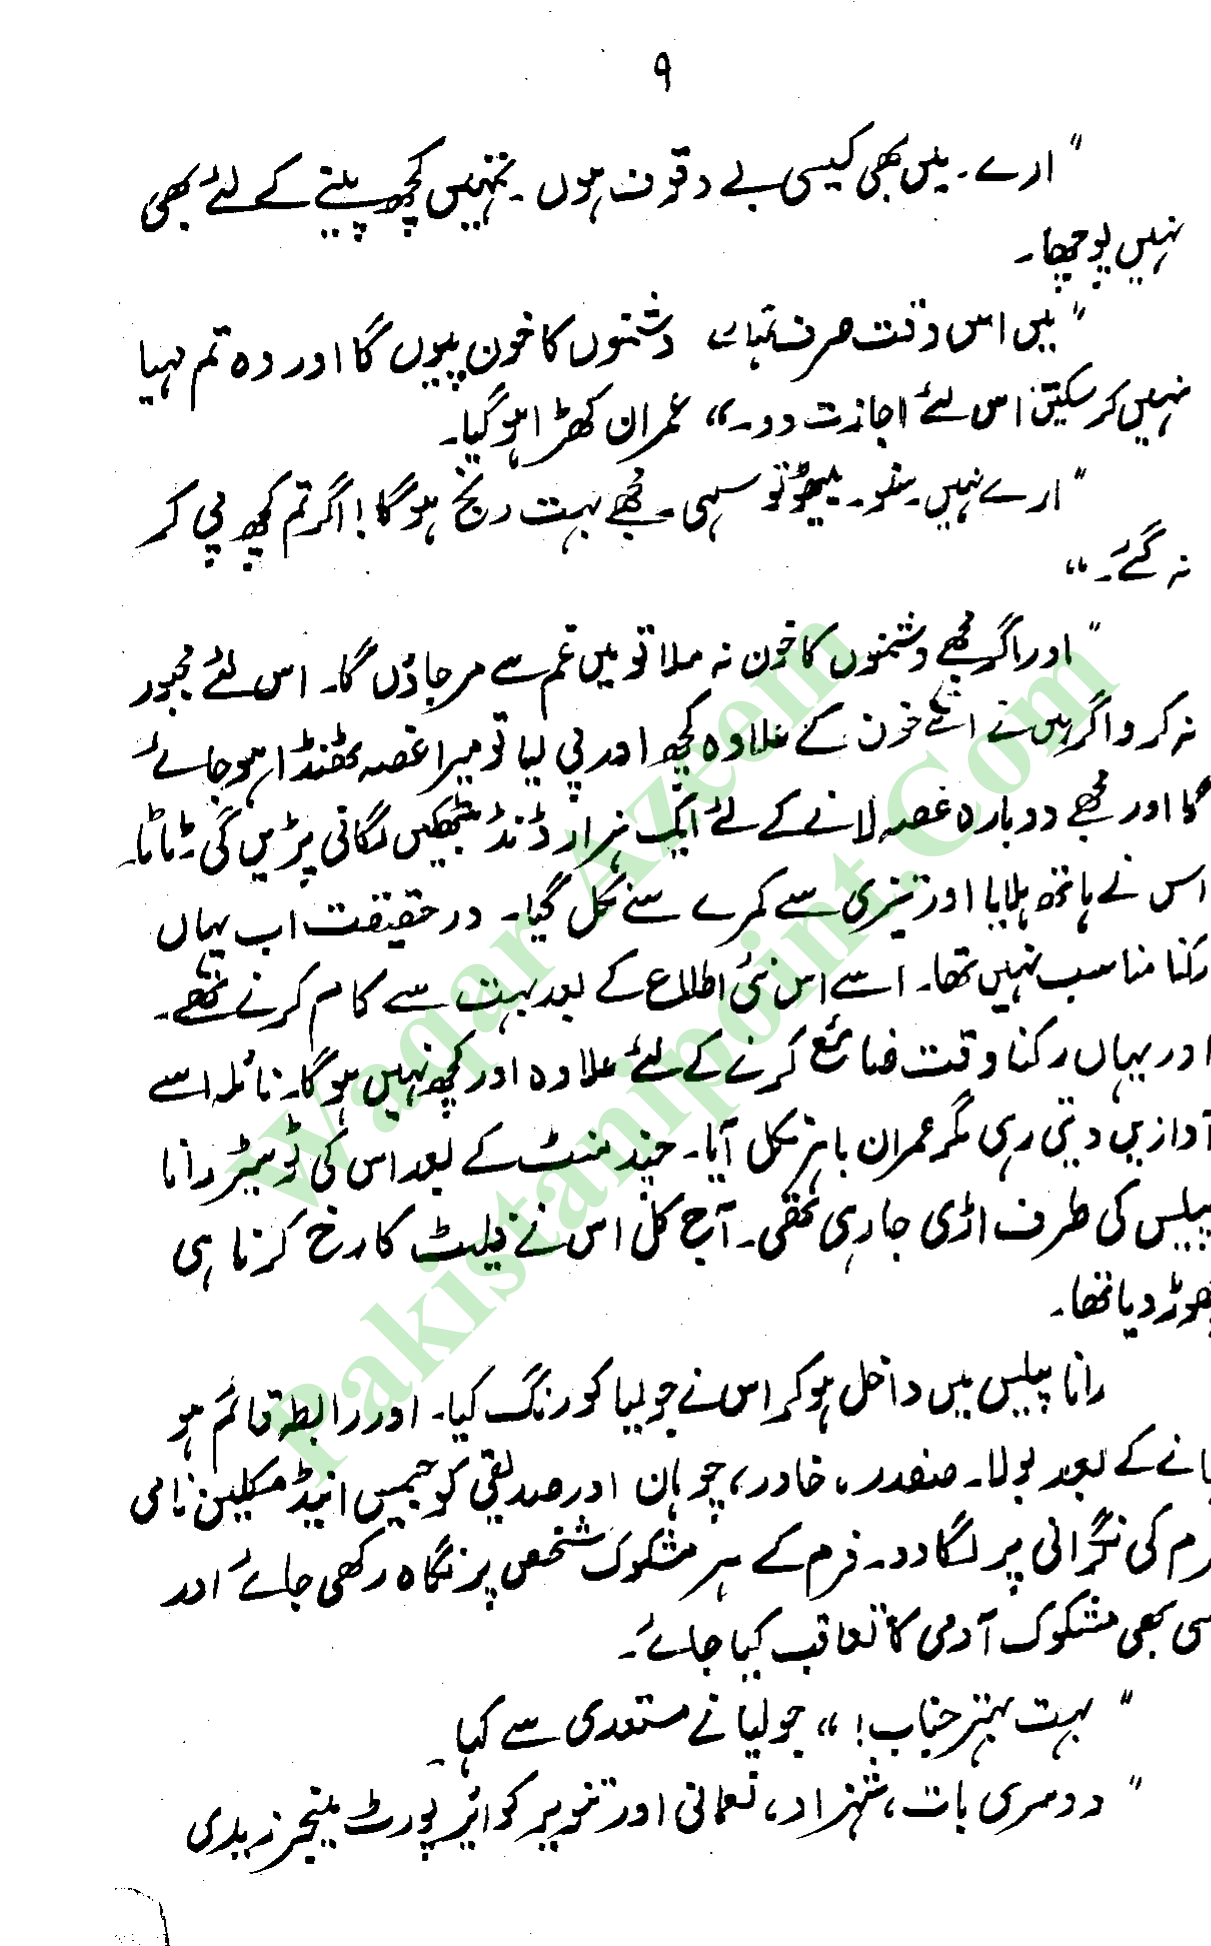 ۹
"ارے۔ میں بھی کیسی بے وقوف ہوں۔ تمہیں کچھ پینے کے لئے بھی
نہیں پوچھا۔
"میں اس وقت صرف تمہارے دشمنوں کا خون پیوں گا اور وہ تم مہیا
نہیں کر سکتیں اس لئے اجازت دو۔" عمران کھڑا ہو گیا۔
"ارے نہیں۔ سنو۔ بیٹھو تو سہی۔ مجھے بہت رنج ہو گا! اگر تم کچھ پی کر
نہ گئے۔"
"اور اگر مجھے دشمنوں کا خون نہ ملا تو میں غم سے مر جاؤں گا۔ اس لئے مجبور
نہ کرو اگر میں نے اتنے خون کے علاوہ کچھ اور پی لیا تو میرا غصہ ٹھنڈا ہو جائے
گا اور مجھے دوبارہ غصہ لانے کے لئے ایک ہزار ڈنڈ بیٹھکیں لگانی پڑیں گی۔ ٹاٹا۔
اس نے ہاتھ ہلایا اور تیزی سے کمرے سے نکل گیا۔ درحقیقت اب یہاں
رکنا مناسب نہیں تھا۔ اسے اس نئی اطلاع کے بعد بہت سے کام کرنے تھے۔
اور یہاں رکنا وقت ضائع کرنے کے لئے علاوہ اور کچھ نہیں ہو گا۔ نائلہ اسے
آوازیں دیتی رہی مگر عمران باہر نکل آیا۔ چند منٹ کے بعد اس کی ٹوسیٹر رانا
پیلس کی طرف اڑی جا رہی تھی۔ آج کل اس نے فلیٹ کا رخ کرنا ہی
چھوڑ دیا تھا۔
رانا پیلس میں داخل ہو کر اس نے جولیا کو رنگ کیا۔ اور رابطہ قائم ہو
جانے کے بعد بولا۔ صفدر، خاور، چوہان اور صدیقی کو جیمس اینڈ میکلین نامی
فرم کی نگرانی پر لگا دو۔ فرم کے ہر مشکوک شخص پر نگاہ رکھی جائے اور
کسی بھی مشکوک آدمی کا تعاقب کیا جائے۔
"بہت بہتر جناب!" جولیا نے مستعدی سے کہا۔
"دوسری بات، شہزاد، نعمانی اور تنویر کو ائیرپورٹ مینجر زیدی
Waqar Azeem
Pakistanipoint.Com